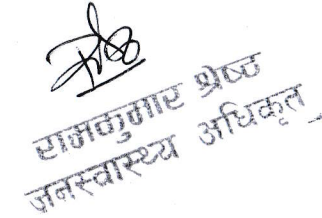 रामकुमार श्रेष्ठ
जनस्वास्थ्य अधिकृत